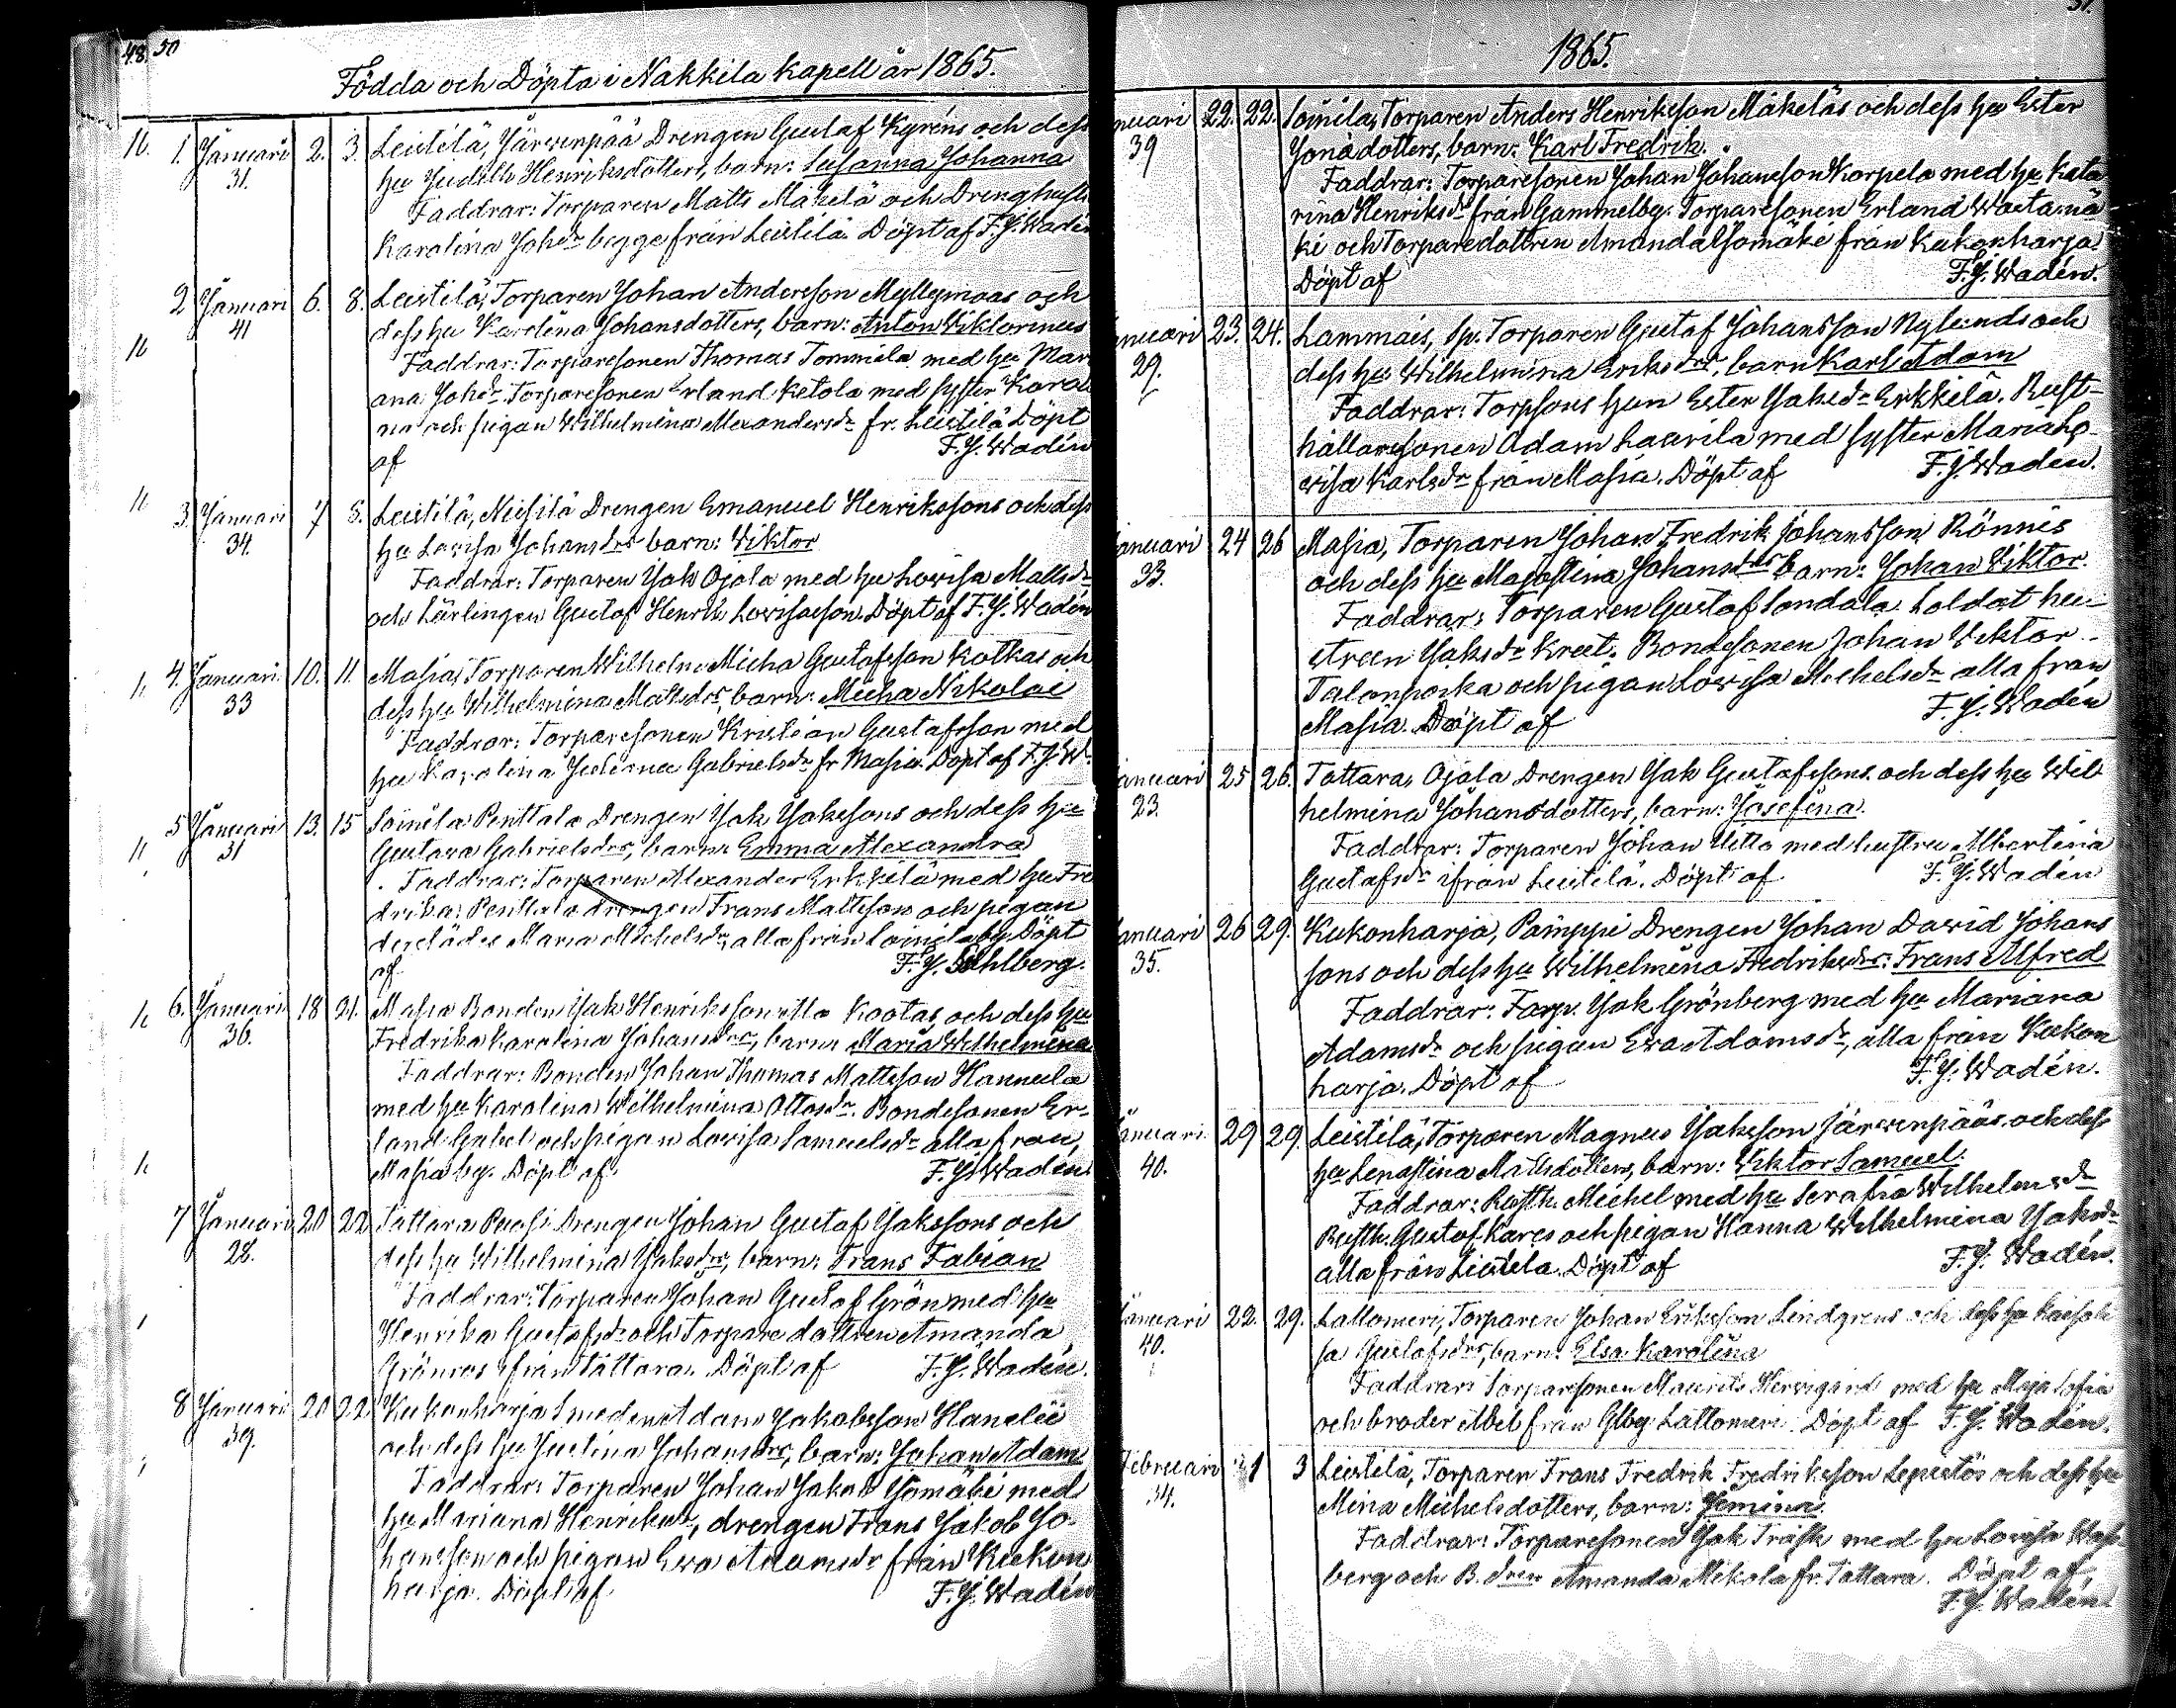 48. 50
Födda och Döpta i Nakkila Kapell år 1865.
1. Januari 2. 3. Leistilä, Järvenpää Drengen Gustaf Kyréns och dess
31. hu Judith Henriksdotters, barn: Susanna Johanna
Faddrar: Torparen Matts Mäkelä och Drenghustr
Karolina Johsdr begge från Leistilä. Döpt af F. J. Wadén
2 Januari 6. 8. Leistilä, Torparen Johan Andersson Myllymaas och
41 dess hu Karolina Johansdotters, barn: Anton Viktorinus
Faddrar: Torparesonen Thomas Tommila med hu Mari
ana Johsdr Torparesonen Erland Ketola med syster Karoli
na och pigan Wilhelmina Alexandersdr fr. Leistilä Döpt
af F. J. Wadén
3. Januari 7 8. Leistilä, Drengen Emanuel Henrikssons och dess
34. hu Lovisa Johansdrs barn: Viktor
Faddrar: Torparen Jak Ojala med hu Lovisa Mattsdr
och Lärlingen Gustaf Henrik Lovisasson. Döpt af F. J. Wadén
4. Januari 10. 11. Masia, Torparen Wilhelm Micha Gustafsson Kotkas och
33 dess hu Wilhelmina Matsdrs, barn: Micha Nikolai
Faddrar: Torparesonen Kristian Gustafsson med
hu Karolina Gabrielsdr fr Masia. Döpt af F. J. W.
5 Januari 13. 15 Soinila Penttala Drengen Jak Jakssons och dess hu
31 Gustava Gabrielsdrs, barn: Emma Alexandra
Faddrar: Torparen Alexander Erkkilä med hu Fre
drika: Penttala drengen Frans Mattsson och pigan
dersädes Maria Michelsdr, alla från Soinila by. Döpt
af F. J. Sahlberg.
6. Januari 18 21. Masia Bonden Jak Henriksson Kootas, och dess hu
36. Fredrika Karolina Johansdrs, barn: Maria Wilhelmina
Faddrar: Bonden Johan Thomas Mattsson Hannula
med hu Karolina Wilhelmina Ottosdr. Bondesonen Er-
land och pigan Lovisa Samuelsdr alla från
Masia by. Döpt af F. J. Wadén
7 Januari 20 22 Tattara Drengen Johan Gustaf Jakssons och
28. dess hu Wilhelmina Jaksdrs, barn: Frans Fabian
Faddrar: Torparen Johan Gustaf Grön med hu
Henrika Gustafsdr och Torparedottren Amanda
Grönroos ifrån Tattara. Döpt af F. J. Wadén.
8 Januari 20 22 Kukonharja Smeden Adam Jakobsson
39. och dess hu Justina Johansdrs, barn: Johan Adam
Faddrar: Torparen Johan Jakob Isomäki med
hu Mariana Henriksdr, drengen Frans Jakob Jo-
hansson och pigan Eva Adamsdr från Kukon
harja. Döpt af F. J. Wadén
1865.
nuari 22. 22. Soinila, Torparen Anders Henriksson Mäkeläs och dess hu Ester
39 Jonadotters, barn: Karl Fredrik.
Faddrar: Torparesonen Johan Johansson Korpela med hu Kata
rina Henriksdr från Gammelby. Torparesonen Erland Wastamä
ki och Torparedottren Amanda Isomäki från Kukonharja
Döpt af F. J. Wadén.
anuari 23. 24. Lammais, Sp. Torparen Gustaf Johansson Nylunds och
29. dess hu Wilhelmina Eriksdrs, barn Karl Adam
Faddrar: Torpsons hun Ester Jaksdr Erkkilä. Rust-
hållaresonen Adam Laurila med syster Maria Lo-
visa Karlsdr från Masia. Döpt af F. J. Wadén.
Januari 24 26 Masia, Torparen Johan Fredrik Johansson Rönnis
33. och dess hu Majastina Johansdrs barn: Johan Viktor.
Faddrar: Torparen Gustaf Sandala. Soldat hu-
strun Jaksdr Kreet. Bondesonen Johan Viktor
Talonpoika och pigan Lovisa Michelsdr alla från
Masia. Döpt af F. J. Wadén
Januari 25 26. Tattara, Ojala Drengen Jak Gustafssons och dess hu Wil
23. helmina Johansdotters, barn: Josefina.
Faddrar: Torparen Johan Uitto med hustru Albertina
Gustafsdr ifrån Leistilä. Döpt af F. J. Wadén
Januari 26 29. Kukonharja, Pämppi Drengen Johan David Johans
35. sons och dess hu Wilhelmina Fredriksdrs: Frans Alfred
Faddrar: Torp. Jak Grönberg med hu Mariana
Adamsdr och pigan Eva Adamsdr, alla från Kukon
harja. Döpt af F. J. Wadén.
Januari 29 29. Leistilä, Torparen Magnus Jaksson Järvenpääs och dess
40. hu Lenastina Mattsdotters, barn: Viktor Samuel.
Faddrar: Rusth. Michel med hu Serafia Wilhelmsdr
Rusth. Gustaf Kares och pigan Hanna Wilhelmina Jaksdr
alla från Leistilä. Döpt af F. J. Wadén.
Januari 22. 29. Lattomeri, Torparen Johan Eriksson Lindgrens och dess hu Kaisali
40. sa Gustafsdrs, barn: Elsa Karolina
Faddrar: Torparesonen Maurits med hu Maja Sofia
och broder Abel från Lattomeri. Döpt af F. J. Wadén.
Februari 1 3 Leistilä, Torparen Frans Fredrik Fredriksson Lepistös och dess hu
34. Mina Michelsdotters, barn: Jemina.
Faddrar: Torparesonen Jak Träsk med hu Lovisa
berg och B. dren Amanda Mikola fr. Tattara. Döpt af
F. J. Wadén